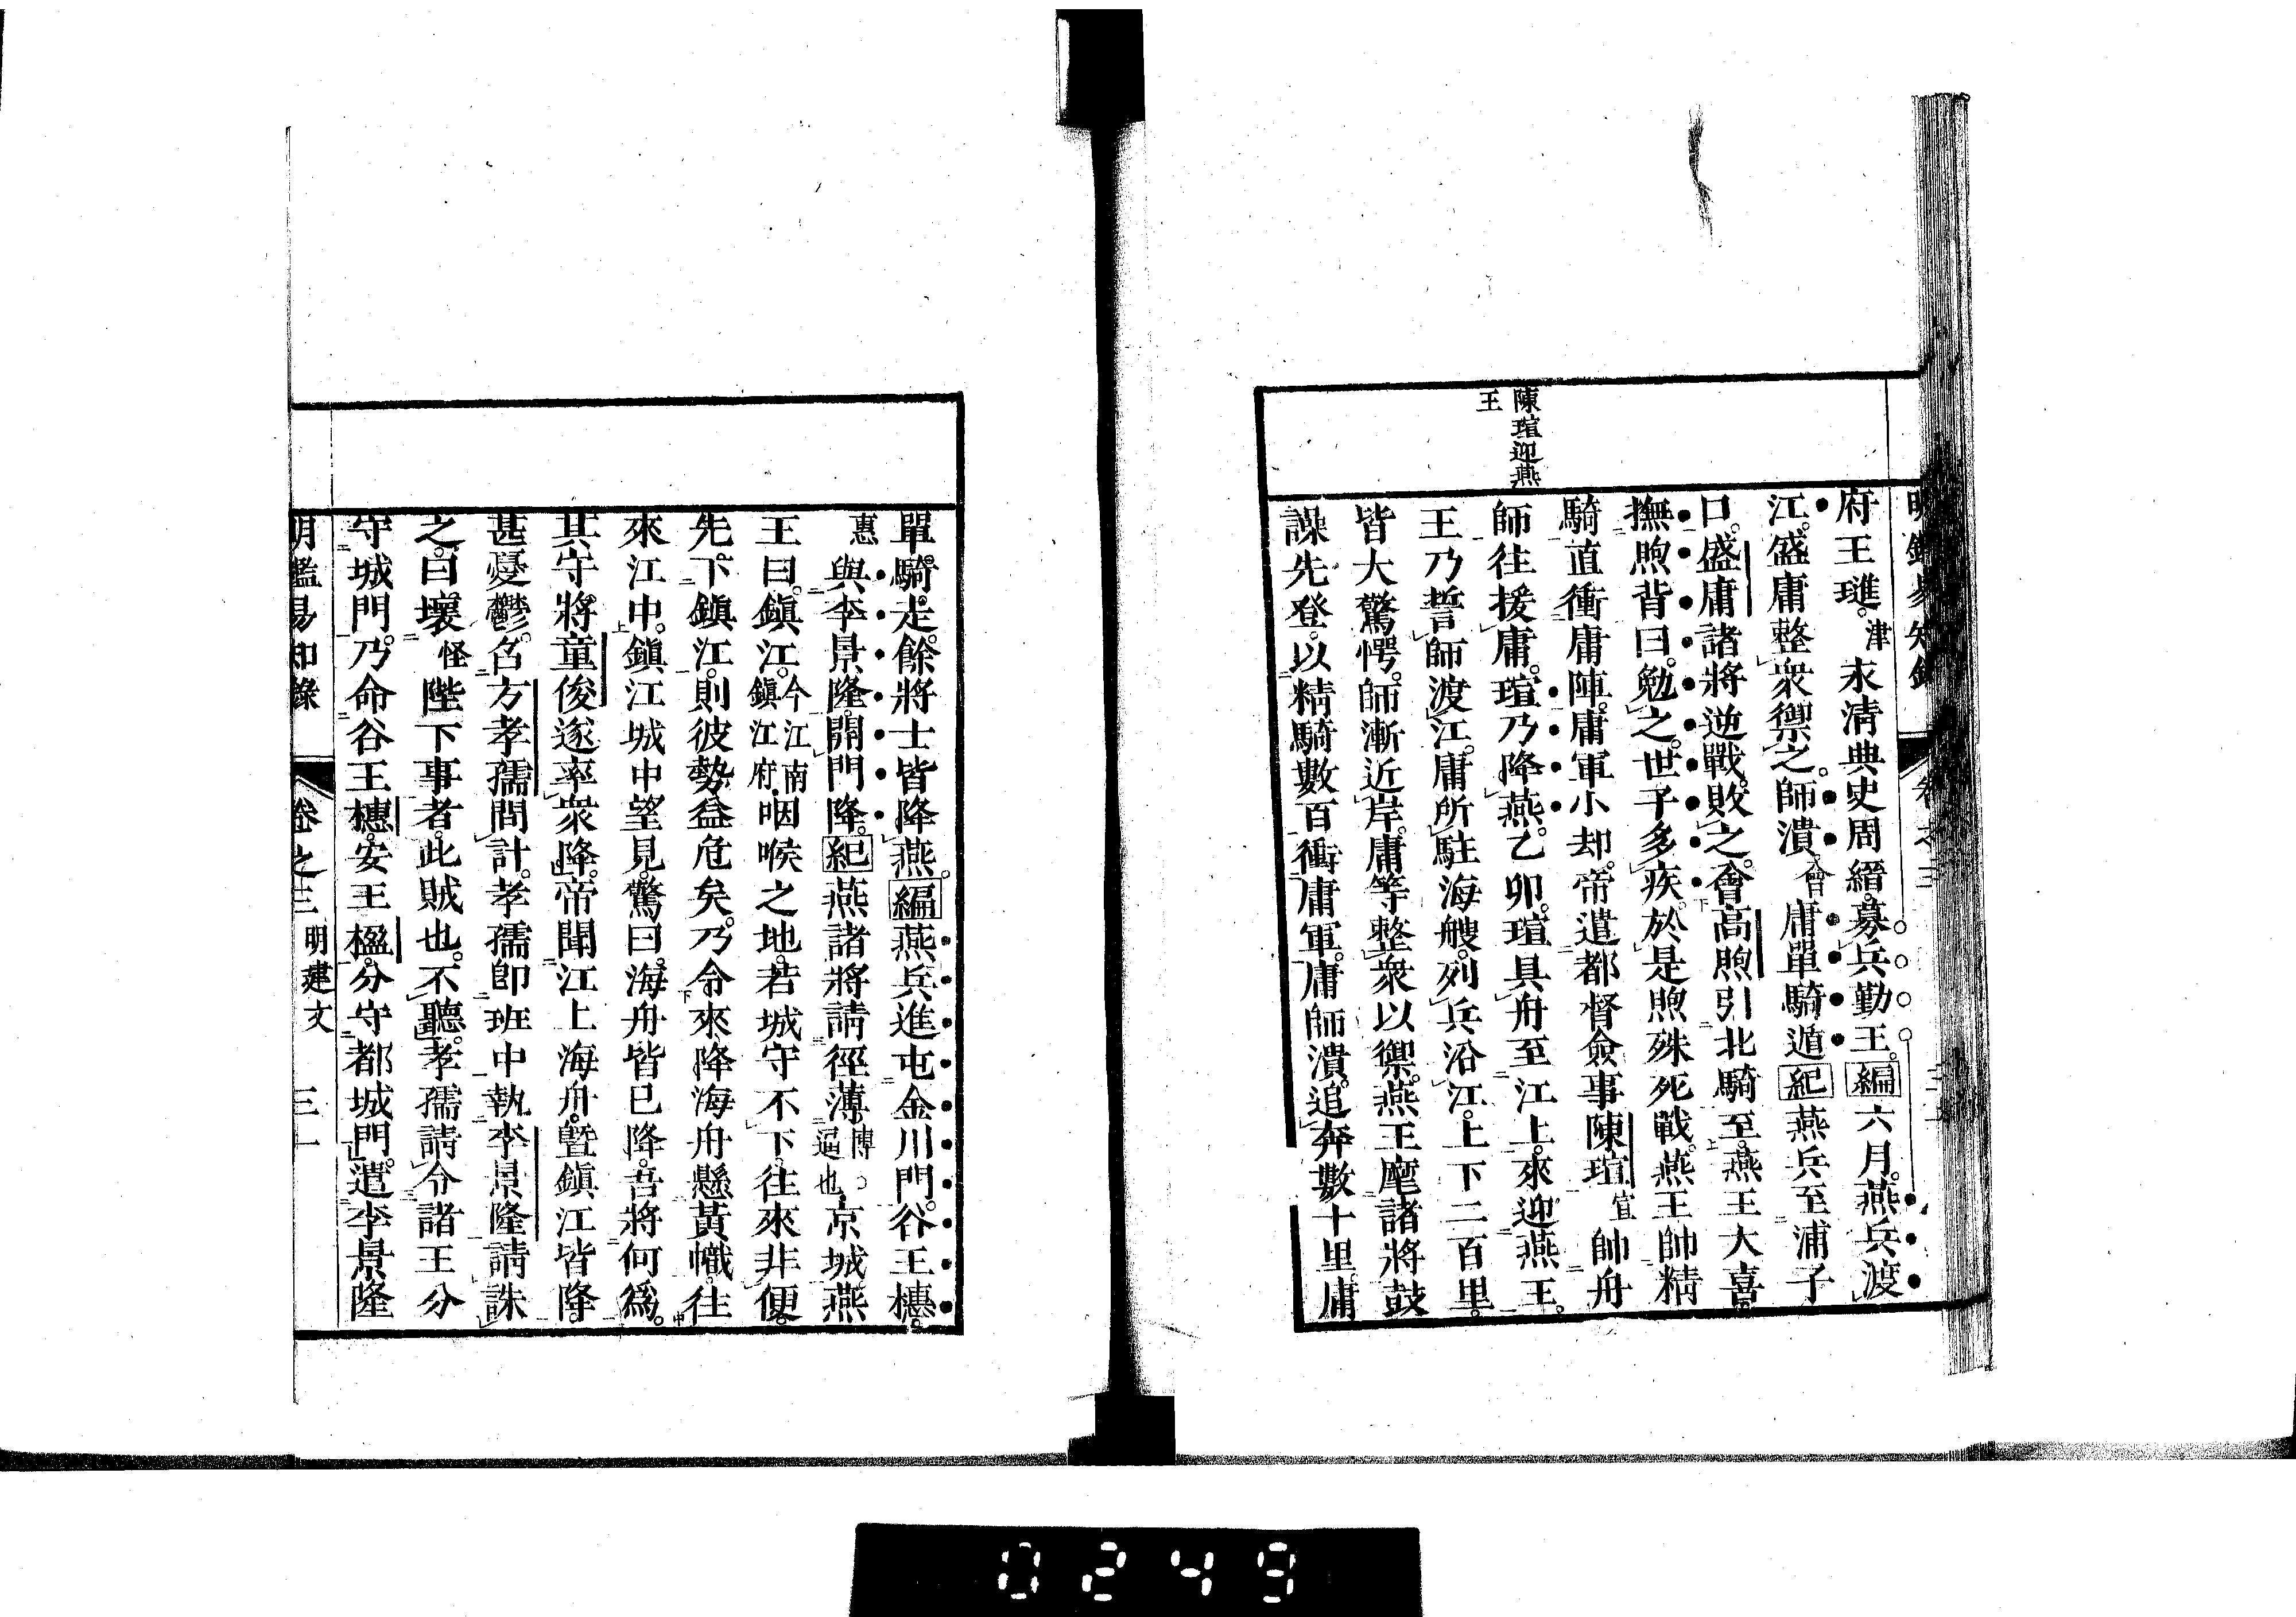 陳瑄迎燕
王
府王璡。津永清典史周縉。募兵勤王。編六月。燕兵渡
江。盛庸整衆禦之。師潰。會庸單騎遁紀燕兵至浦子
口。盛庸諸將逆戰。敗之。會高煦引北騎至。燕王大喜。
撫煦背曰。勉之。世子多疾。於是煦殊死戰。燕王帥精
騎直衝庸陣。庸軍小却。帝遣都督僉事陳瑄宣帥舟
師往援庸。瑄乃降燕。乙卯。瑄具舟至江上。來迎燕王。
王乃誓師渡江。庸所駐海艘。列兵沿江。上下二百里。
皆大驚愕。師漸近岸。庸等整衆以禦。燕王麾諸將鼓
譟先登。以精騎數百衝庸軍。庸師潰。追奔數十里。庸
單騎走。餘將士皆降燕。編燕兵進屯金川門。谷王橞。
惠與李景隆。開門降。紀燕諸將請徑薄博○逼也京城。燕
王曰。鎭江。今江南鎭江府咽喉之地。若城守不下。往來非便。
先下鎭江。則彼勢益危矣。乃令來降海舟懸黃幟。往
來江中。鎭江城中望見。驚曰。海舟皆已降。吾將何爲。
其守將童俊遂率衆降。帝聞江上海舟。曁鎭江皆降。
甚憂鬱。召方孝孺問計。孝孺卽班中執李景隆。請誅
之。曰。壞怪陛下事者。此賊也。不聽。孝孺請令諸王分
守城門。乃命谷王橞。安王楹。分守都城門。遣李景隆
明鑑易知錄 卷之三 明建文